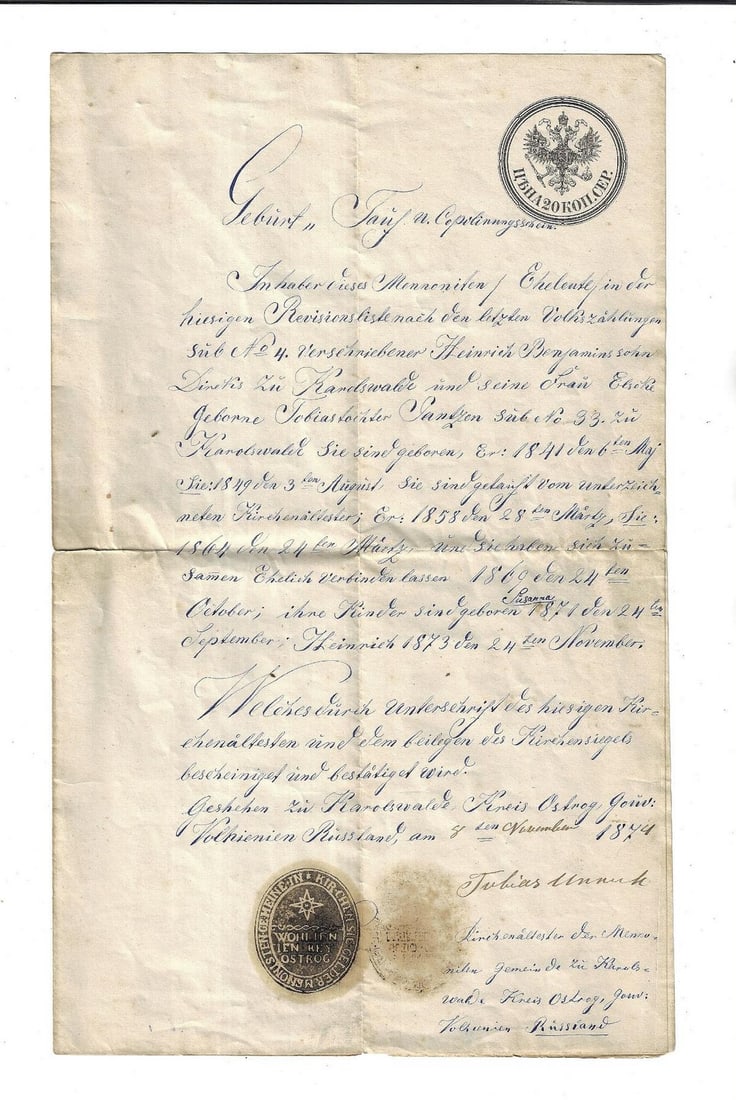 ЦѢНА 20 КОП. СЕР.
Geburt „ Tauf u. Copolirungsschein.
Inhaber dieses Mennoniten / Eheleute / in der
hiesigen Revisionsliste nach den letzten Volkszählungen
sub No 4. verschriebener Heinrich Benjaminssohn
Direks zu Karolswalde und seine Frau Elscke
geborne Tobiastochter Jantzen sub No 33. zu
Karolswalde Sie sind geboren, Er: 1841 den 6ten Maj
Sie: 1849 den 3ten August Sie sind getauft vom unterzeich-
neten Kirchenältester; Er: 1858 den 28ten Märtz, Sie:
1864 den 24ten Märtz, und sie haben sich zu-
sam̅en Ehelich verbinden lassen 1869 den 24ten
October; ihre Kinder sind geboren Susanna 1871 den 24ten
September; Heinrich 1873 den 24ten November.
Welches durch Unterschrift des hiesigen Kir-
chenältesten und dem beiligen des Kirchensiegels
bescheiniget und bestätiget wird.
Geshehen zu Karolswalde Kreis Ostrog, Gouv:
Volhienien Russland, am 8ten November 1874
Tobias Unruh
Kirchenältester der Menno-
niten gemeinde zu Karols-
walde Kreis Ostrog, Gouv:
Volhienien Russland
KIRCHEN SIEGEL DER MENONISTEN GEMEINE IN
WOHLIEN
IEN BEY
OSTROG